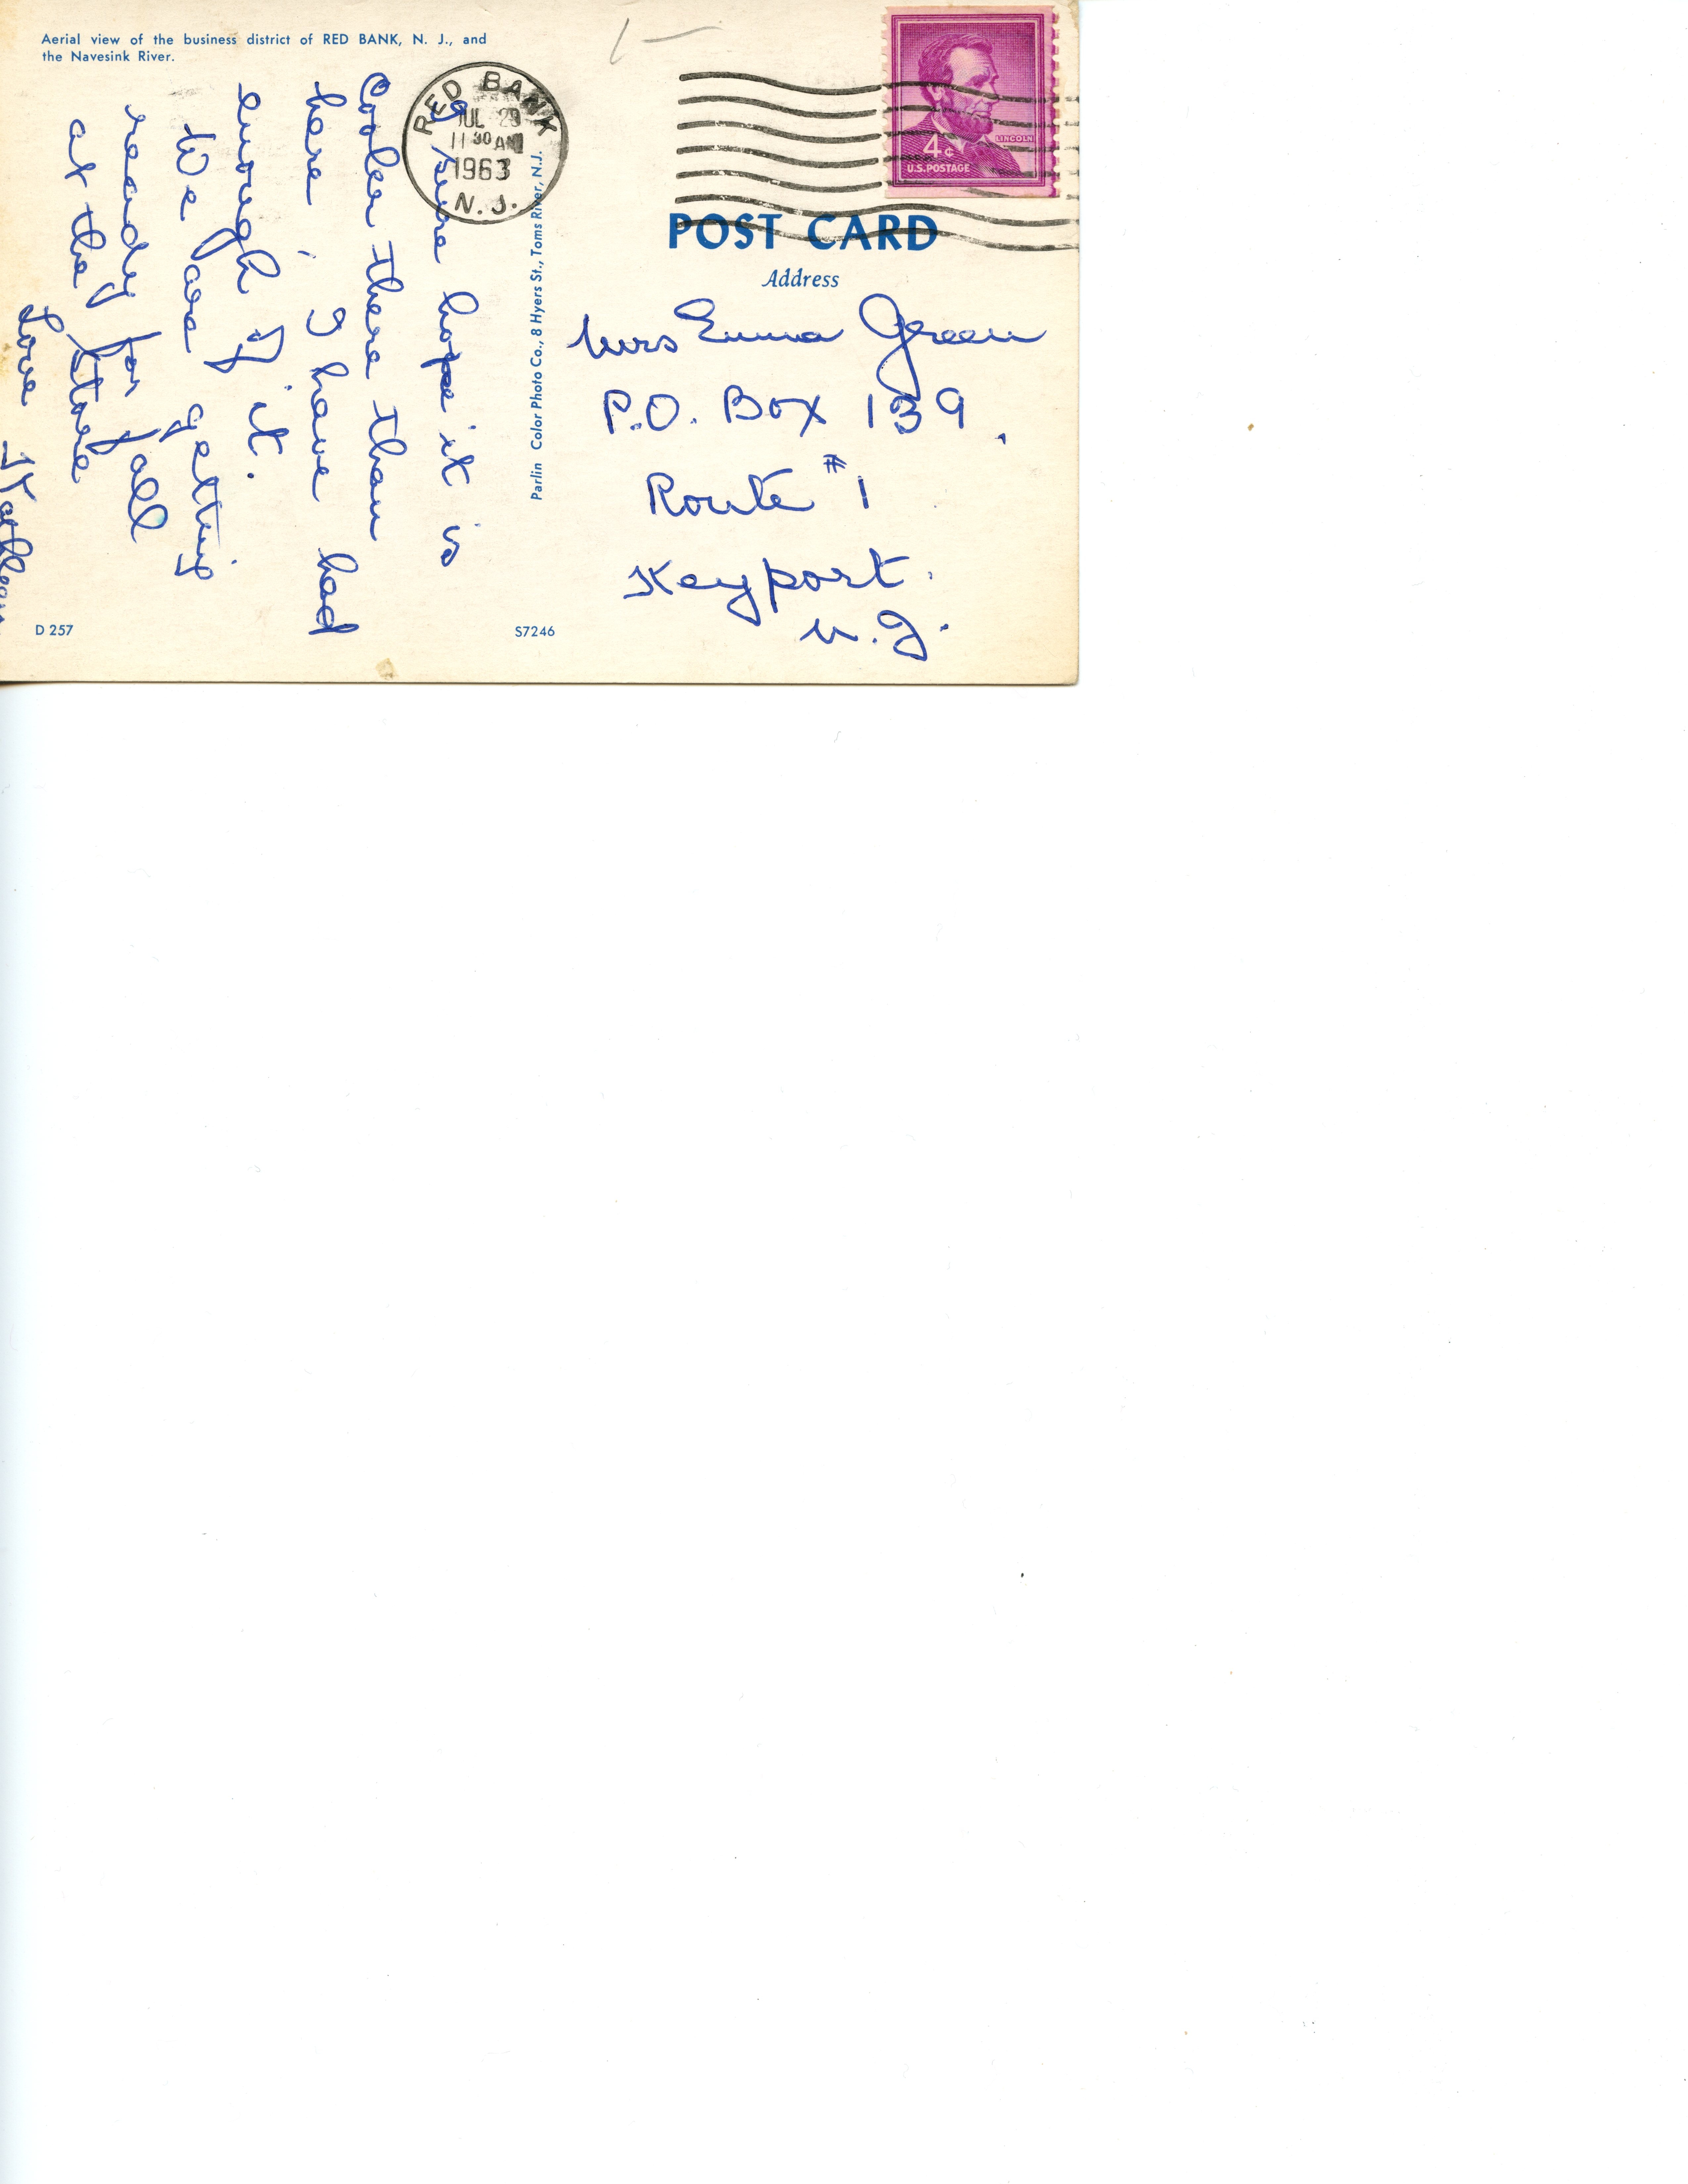 Aerial view of the business district of RED BANK, N. J., and
the Navesink River.
RED BANK
JUL 29
11 30 AM
1963
N. J.
LINCOLN
4¢
U.S. POSTAGE
POST CARD
Address
Mrs Emma Green
P.O. Box 139.
Route #1
Keyport.
N.J.
I sure hope it is
Cooler there than
here, I have had
enough of it.
We are getting
ready for fall
at the store
Love Kathleen
Parlin Color Photo Co., 8 Hyers St., Toms River, N.J.
D 257
S7246